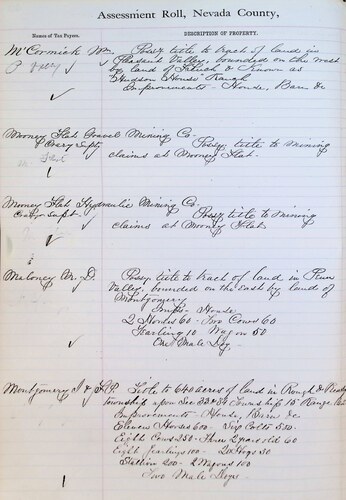 Assessment Roll, Nevada County,
Names of Tax Payers.
DESCRIPTION OF PROPERTY.
McCormick Wm Possy title to tract of land in
Pleasant Valley, bounded on the west
by land of & Known as
Hudson House Ranch
Improvements - House, Barn &c
Mooney Flat Gravel Mining Co.
Supt Possy title to mining
claims at Mooney Flat.
Mooney Flat Hydraulic Mining Co.
Supt. Possy title to mining
claims at Mooney Flat.
Maloney W. D. Possy title to tract of land in Penn
Valley, bounded on the east by lands of
Montgomery
Impts - House
2 Horses 60 - Two Cows 60
Yearling 10 Wagon 50
One Male Dog.
Montgomery J & S. P. Title to 640 acres of land in Rough & Ready
township upon Sec Township 16 Range
Improvements - House, Barn &c
Eleven Horses 600 - Six Colts 500.
Eight Cows 250 - Three 2 years old 60
Eight yearlings 100 - 20 Hogs 50
Stallion 200 - 2 Wagons 100
Two Male Dogs